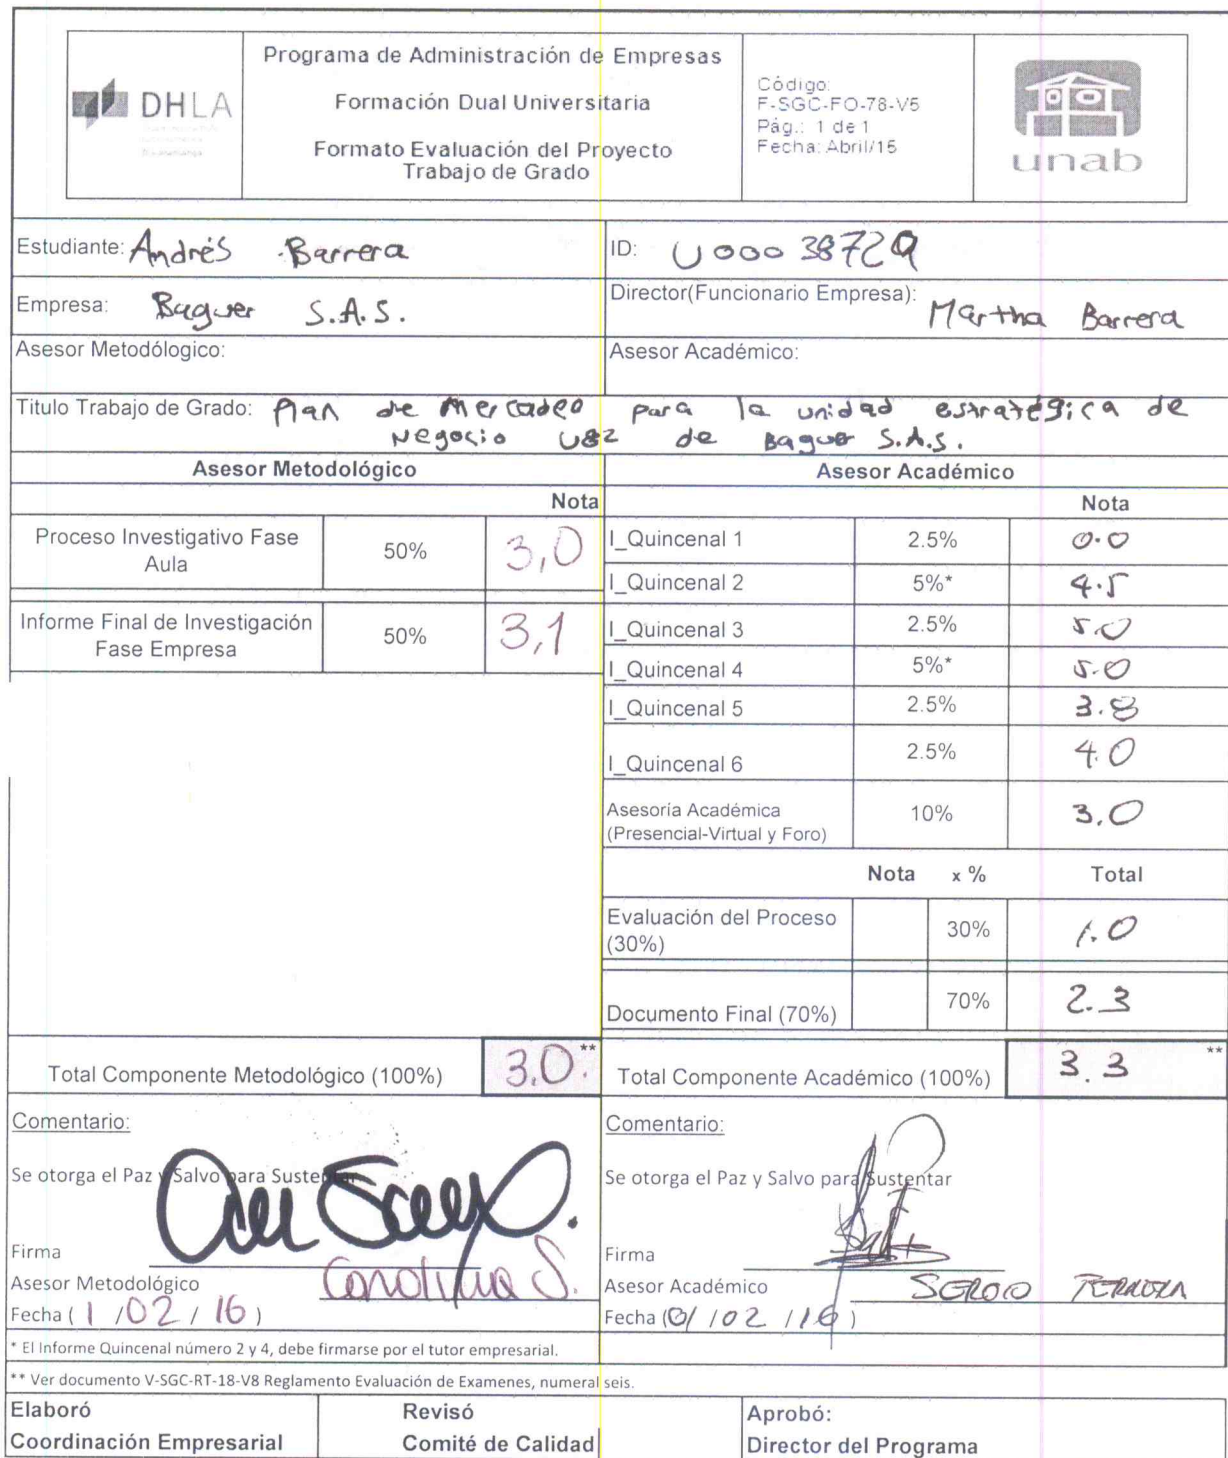 DHLA
Programa de Administración de Empresas
Formación Dual Universitaria
Formato Evaluación del Proyecto
Trabajo de Grado
Código:
F-SGC-FO-78-V5
Pág.: 1 de 1
Fecha: Abril/15
unab
Estudiante: Andrés Barrera
ID: U00038729
Empresa: Baguer S.A.S.
Director(Funcionario Empresa): Martha Barrera
Asesor Metodólogico:
Asesor Académico:
Titulo Trabajo de Grado: Plan de Mercadeo para la unidad estratégica de
Negocio U82 de Baguer S.A.S.
Asesor Metodológico
Nota
Proceso Investigativo Fase
Aula
50% 3,0
Informe Final de Investigación
Fase Empresa
50% 3,1
Asesor Académico
Nota
I_Quincenal 1 2.5% 0.0
I_Quincenal 2 5%* 4.5
I_Quincenal 3 2.5% 5.0
I_Quincenal 4 5%* 5.0
I_Quincenal 5 2.5% 3.8
I_Quincenal 6 2.5% 4.0
Asesoría Académica
(Presencial-Virtual y Foro)
10% 3.0
Nota x % Total
Evaluación del Proceso
(30%)
30% 1.0
Documento Final (70%) 70% 2.3
Total Componente Metodológico (100%) 3.0. **
Total Componente Académico (100%) 3.3 **
Comentario:
Se otorga el Paz y Salvo para Sustentar
Firma
Asesor Metodológico Carolina S.
Fecha ( 1 /02 / 16 )
Comentario:
Se otorga el Paz y Salvo para Sustentar
Firma
Asesor Académico SERGIO
Fecha (01 /02 /16 )
* El Informe Quincenal número 2 y 4, debe firmarse por el tutor empresarial.
** Ver documento V-SGC-RT-18-V8 Reglamento Evaluación de Examenes, numeral seis.
Elaboró
Coordinación Empresarial
Revisó
Comité de Calidad
Aprobó:
Director del Programa